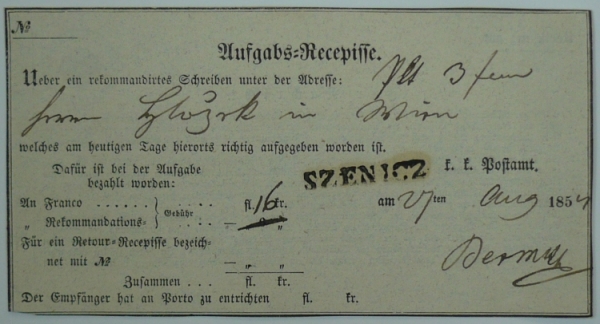 №
Aufgabs-Recepisse.
Ueber ein rekommandirtes Schreiben unter der Adresse: 3
Herrn in Wien
welches am heutigen Tage hierorts richtig aufgegeben worden ist.
Dafür ist bei der Aufgabe
bezahlt worden:
SZENICZ k. k. Postamt.
An Franco . . . . . . Gebühr . . . . fl. 16 kr.
„ Rekommandations- — „
am 27ten Aug 1854
Für ein Retour-Recepisse bezeich-
net mit № — „ „
Zusammen . . . fl. kr.
Der Empfänger hat an Porto zu entrichten fl. kr.